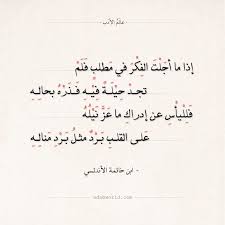 عالَمُ الأدب
إذا ما أجَلْتَ الفِكْرَ في مَطلبٍ فَلَمْ
تجدْ حِيْلَةً فيْهِ فَذَرْهُ بحالِهِ
فَلليأسُ عن إدراكِ ما عَزَّ نَيْلُهُ
عَلى القلبِ بَرْدٌ مثلُ بَرْدِ مَنالِهِ
- ابن خاتمة الأندلسي
adabworld.com